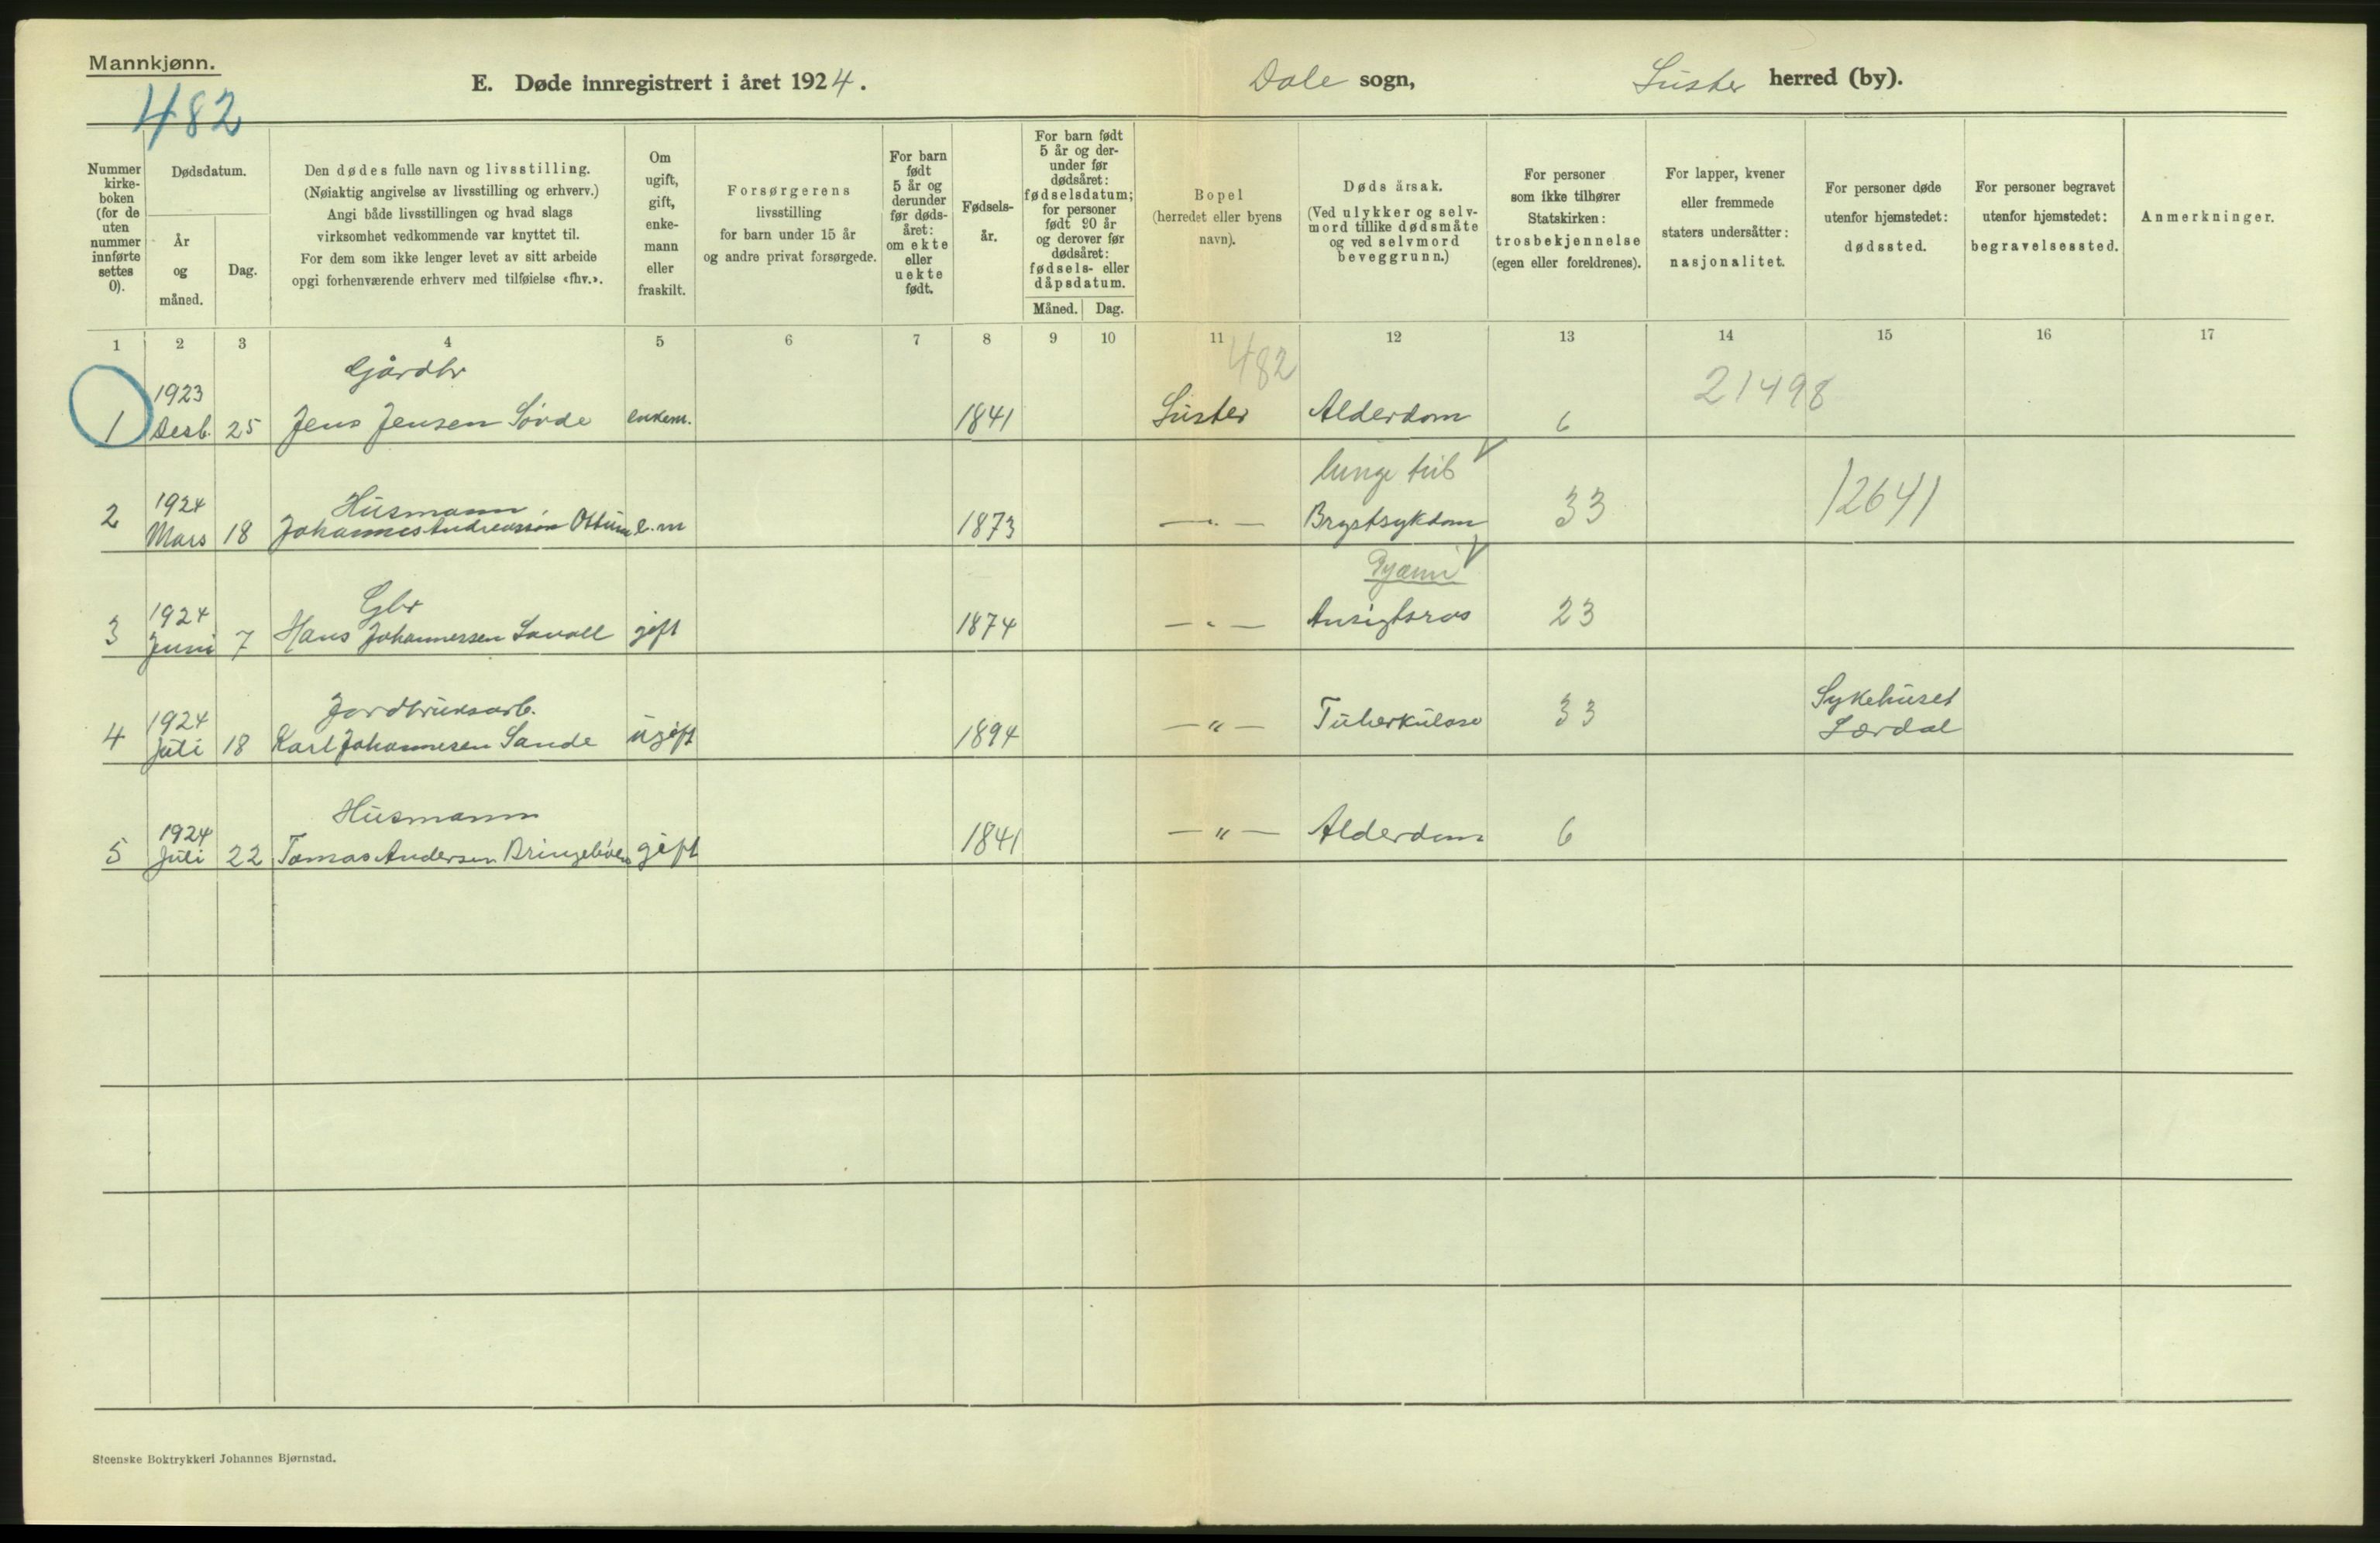 Mannkjønn.
482
E. Døde innregistrert i året 1924.
Dale sogn,
Luster herred (by).
Nummer
kirke-
boken
(for de
uten
nummer
innførte
settes
0).
Dødsdatum.
År
og
måned.
Dag.
Den dødes fulle navn og livsstilling.
(Nøiaktig angivelse av livsstilling og erhverv.)
Angi både livsstillingen og hvad slags
virksomhet vedkommende var knyttet til.
For dem som ikke lenger levet av sitt arbeide
opgi forhenværende erhverv med tilføielse «fhv.».
Om
ugift,
gift,
enke-
mann
eller
fraskilt.
Forsørgerens
livsstilling
for barn under 15 år
og andre privat forsørgede.
For barn
født
5 år og
derunder
før døds-
året:
om ekte
eller
uekte
født.
Fødsels-
år.
For barn født
5 år og der-
under før
dødsåret:
fødselsdatum;
for personer
født 90 år
og derover før
dødsåret:
fødsels- eller
dåpsdatum.
Måned.
Dag.
Bopel
(herredet eller byens
navn).
Dødsårsak.
(Ved ulykker og selv-
mord tillike dødsmåte
og ved selvmord
beveggrunn.)
For personer
som ikke tilhører
Statskirken:
trosbekjennelse
(egen eller foreldrenes).
For lapper, kvener
eller fremmede
staters undersåtter:
nasjonalitet.
For personer døde
utenfor hjemstedet:
dødssted.
For personer begravet
utenfor hjemstedet:
begravelsessted.
Anmerkninger.
1 2 3 4 5 6 7 8 9 10 11 12 13 14 15 16 17
482
Gårdbr
1923
1 Desb. 25 Jens Jensen Søvde enkem. 1841 Luster Alderdom 6 21498
lunge tub
1924 Husmann
2 Mars 18 Johannes Andreasson Ottum e.m 1873 — " — Brystsykdom 33 12641
Pyæmi
1924 Gbr
3 Juni 7 Hans Johannessen gift 1874 — " — Ansigtsros 23
1924 Jordbruksarb. Sykehuset
4 Juli 18 Karl Johannesen Sande ugift 1894 — " — Tuberkulose 33 Lærdal
1924 Husmann
5 Juli 22 Tomas Andersen gift 1841 — " — Alderdom 6
Steenske Boktrykkeri Johannes Bjørnstad.